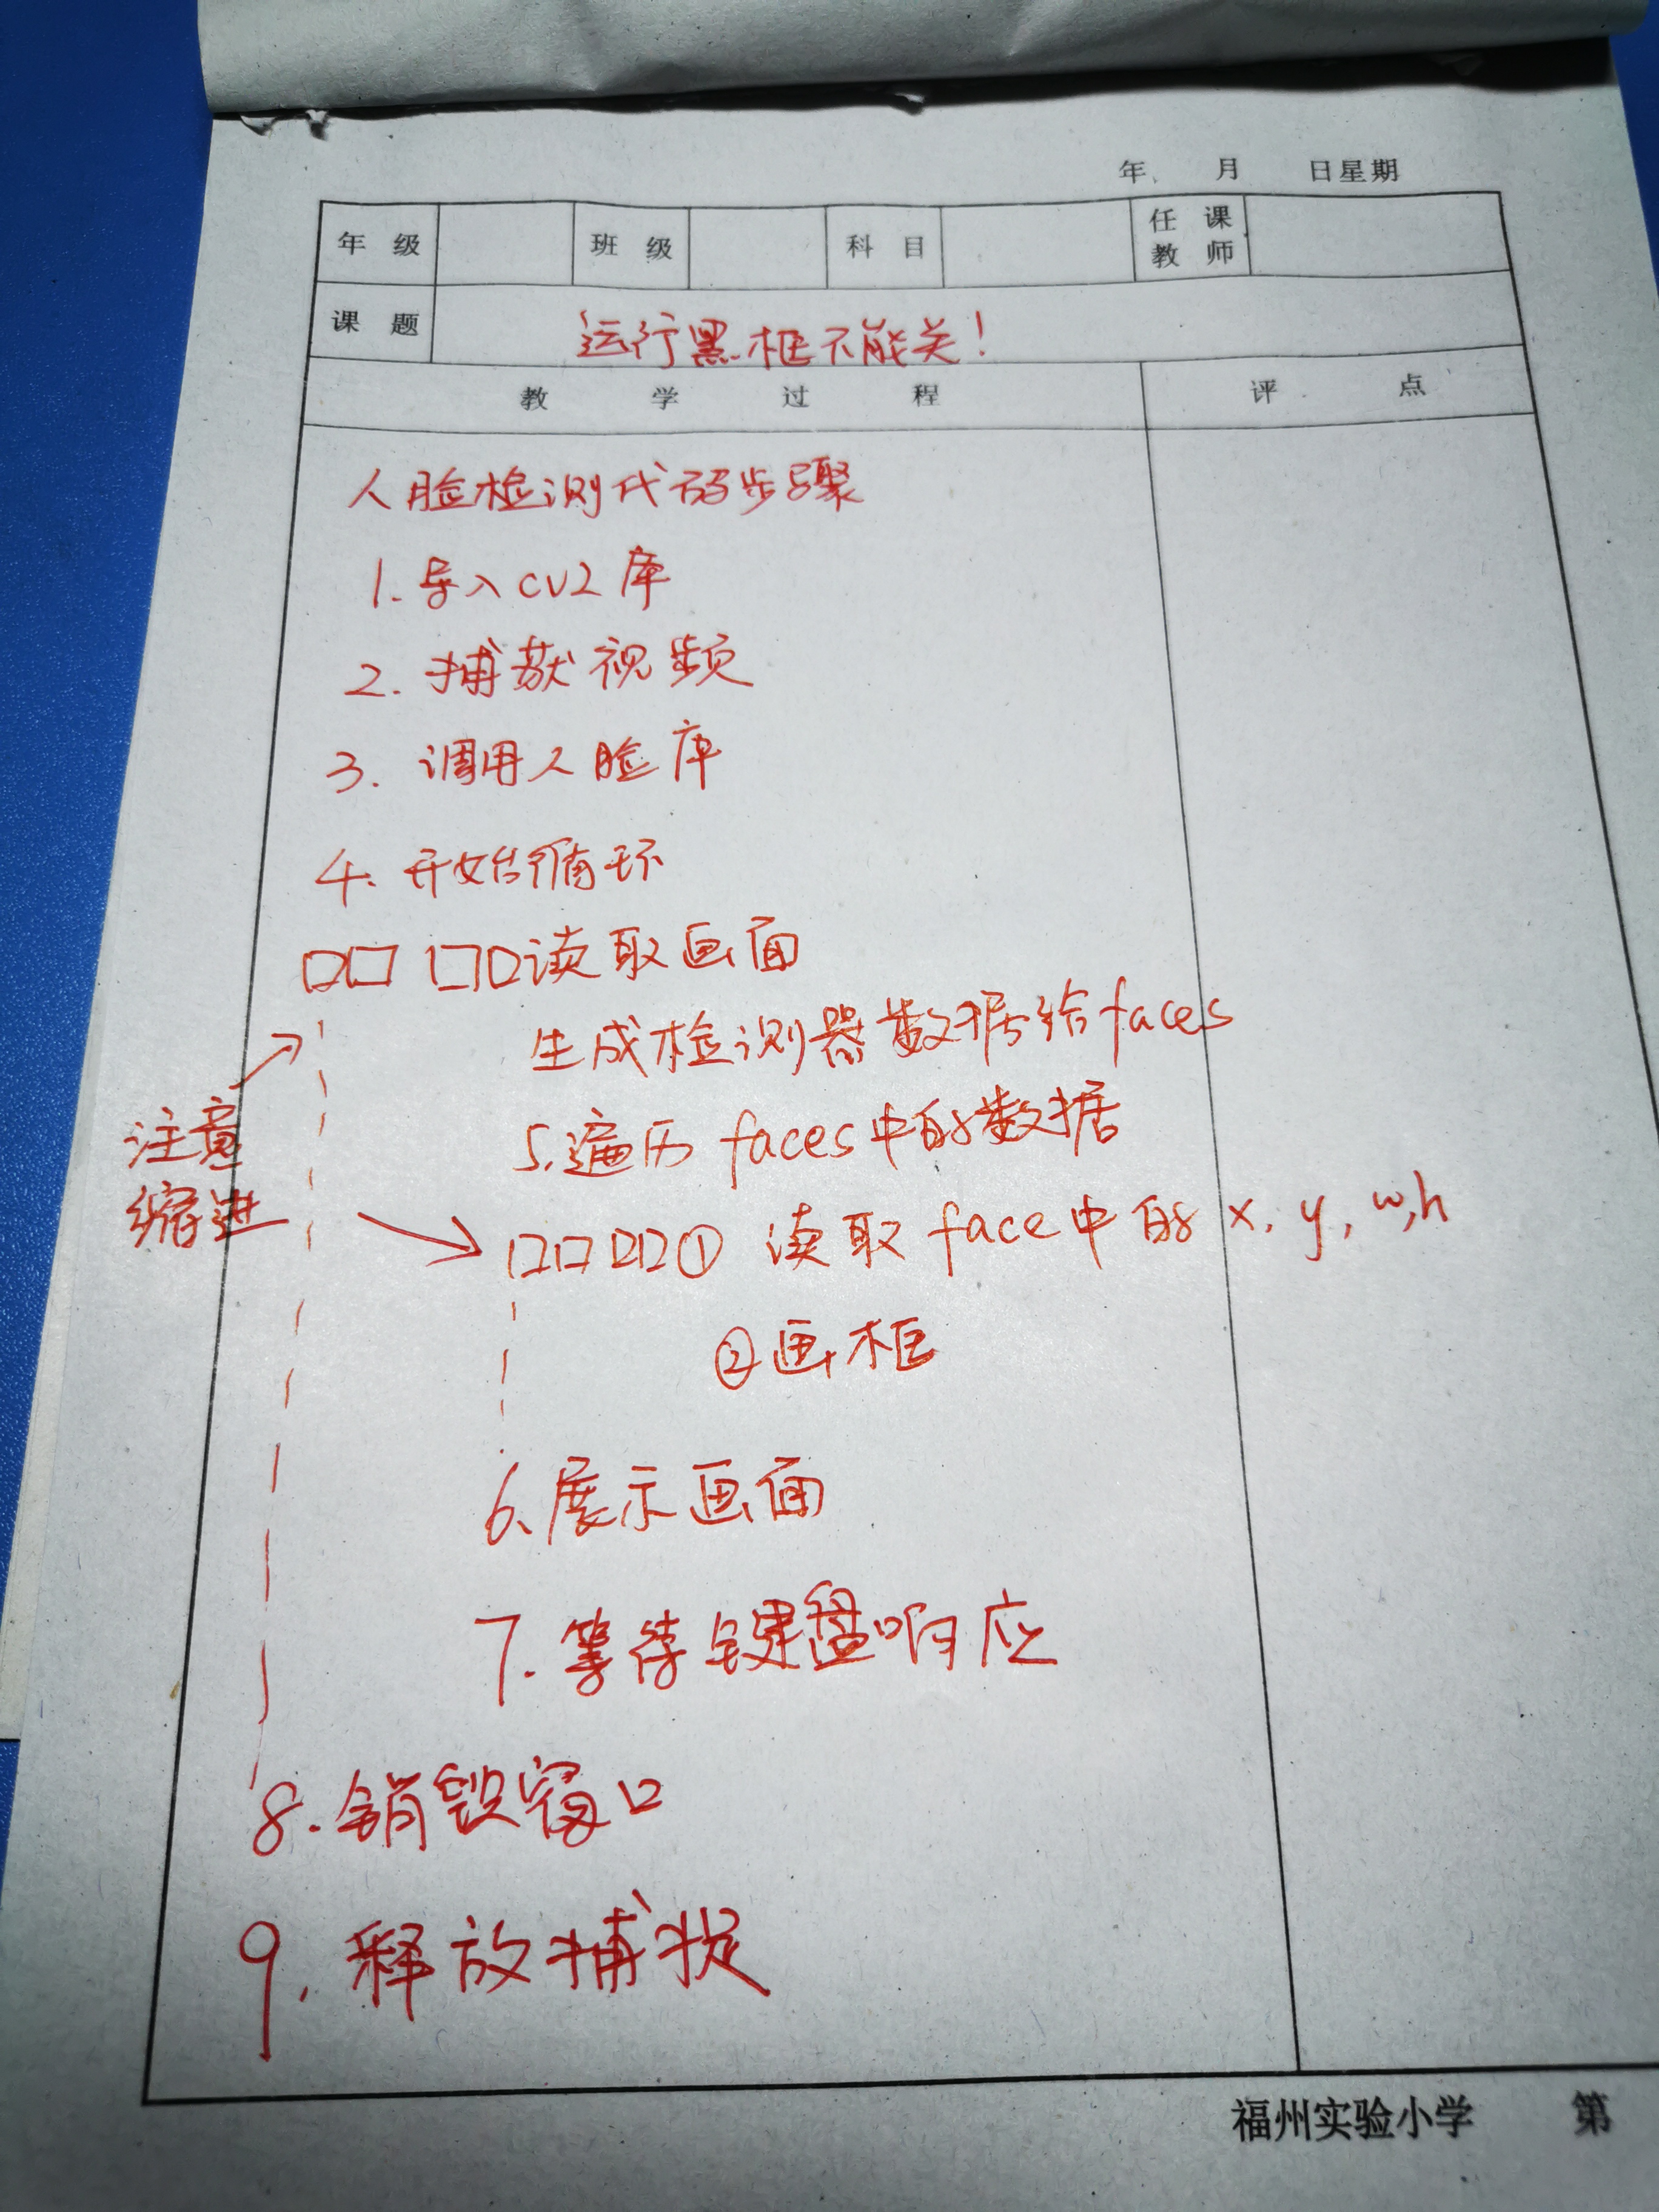 年、 月 日星期
年级 班级 科目 任课教师
课题 运行黑框不能关！
教学过程 评点
人脸检测代码步骤
1. 导入cv2库
2. 捕获视频
3. 调用人脸库
4. 开始循环
□□ □□读取画面
生成检测器数据给faces
5.遍历 faces中的数据
注意
缩进
□□□□① 读取 face中的 x, y, w,h
②画框
6、展示画面
7. 等待键盘响应
8. 销毁窗口
9. 释放捕捉
福州实验小学 第